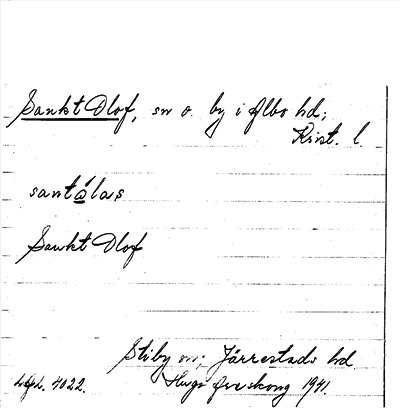 Sankt Olof, sn o. by i Albo hd;
Krist. l.
santọ́las
Sankt Olof
Stiby sn; Järrestads hd.
Lgd. 4022. Hugo Areskoug 1941.